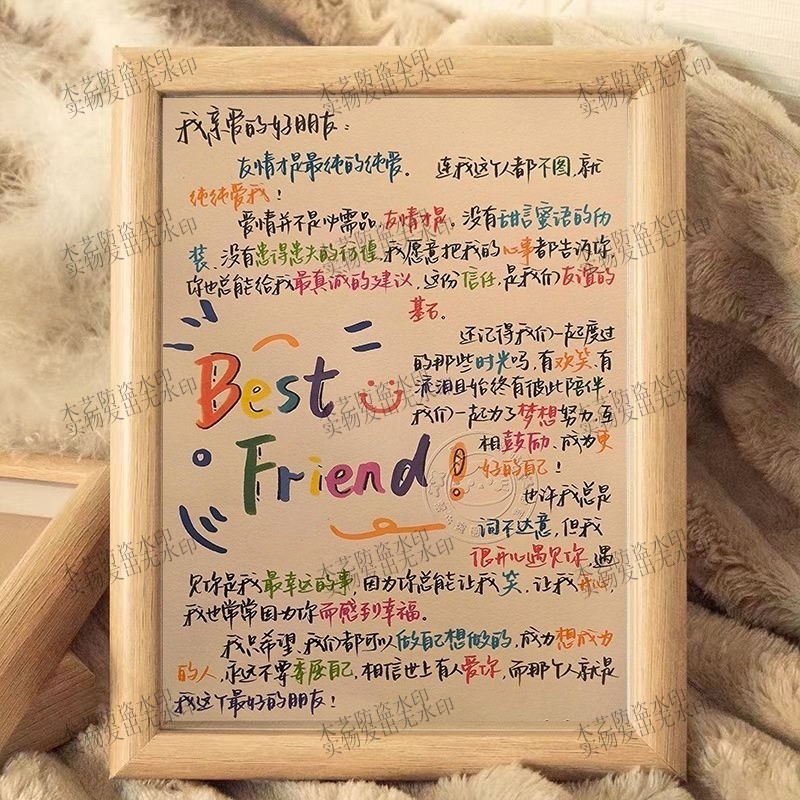 我亲爱的好朋友：
友情才是最纯的纯爱。 连我这个人都不图，就
纯纯爱我！
爱情并不是必需品，友情才是。没有甜言蜜语的伪
装、没有患得患失的彷徨，我愿意把我的心事都告诉你，
你也总能给我最真诚的建议，这份信任，是我们友谊的
基石。
还记得我们一起度过
的那些时光吗，有欢笑、有
泪且始终有彼此陪伴，
我们一起为了梦想努力、互
相鼓励、成为更
好的自己！
Best
Friend!
也许我总是
词不达意，但我
很开心遇见你，遇
见你是我最幸运的事，因为你总能让我笑、让我开心，
我也常常因为你而感到幸福。
我只希望、我们都可以做自己想做的，成为想成为
的人，永远不要辜负自己，相信世上有人爱你，而那个人就是
我这个最好的朋友！
本艺随盗水印
实物发出无水印